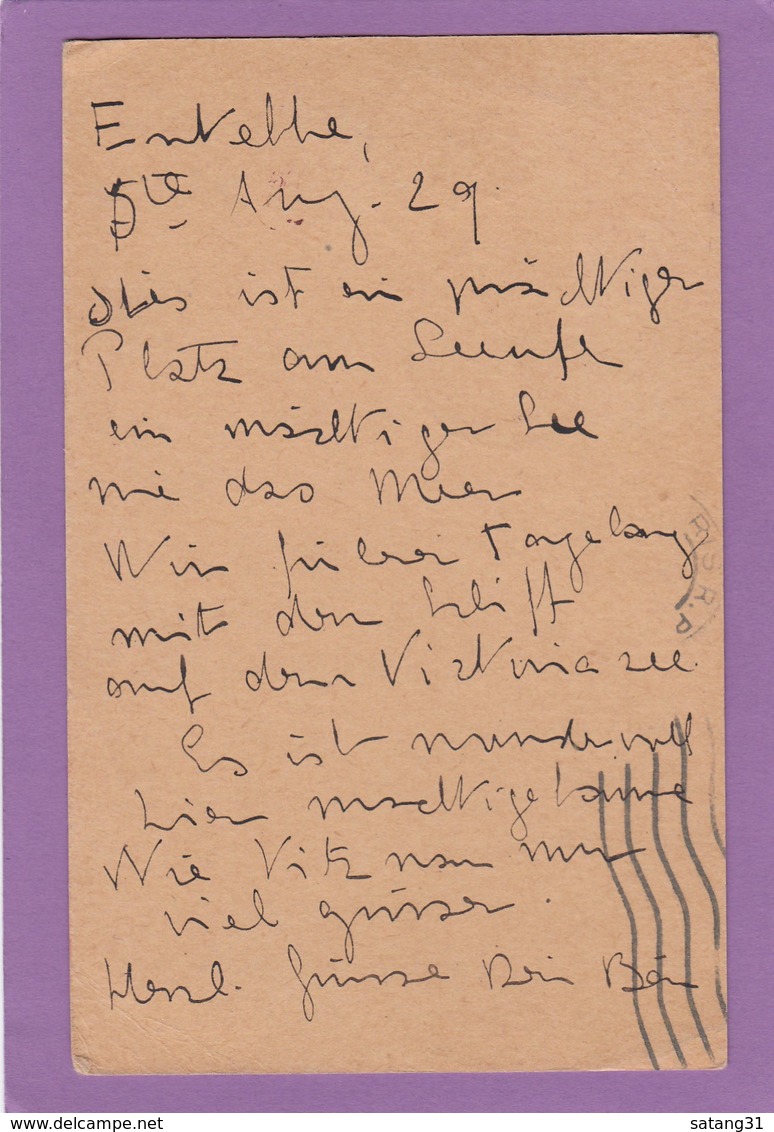 Entebbe,
5te Aug. 29.
Dies ist ein prächtiger
Platz am Seeufer
ein mächtiger See
wie das Meer
Wir fuhren tagelang
mit dem Schiff
auf dem Victoria see.
Es ist wundervoll
hier mächtige Bäume
Wie Vitznau nur
viel grösser.
Herzl. Grüsse Dein
R.S.R.P
satang31